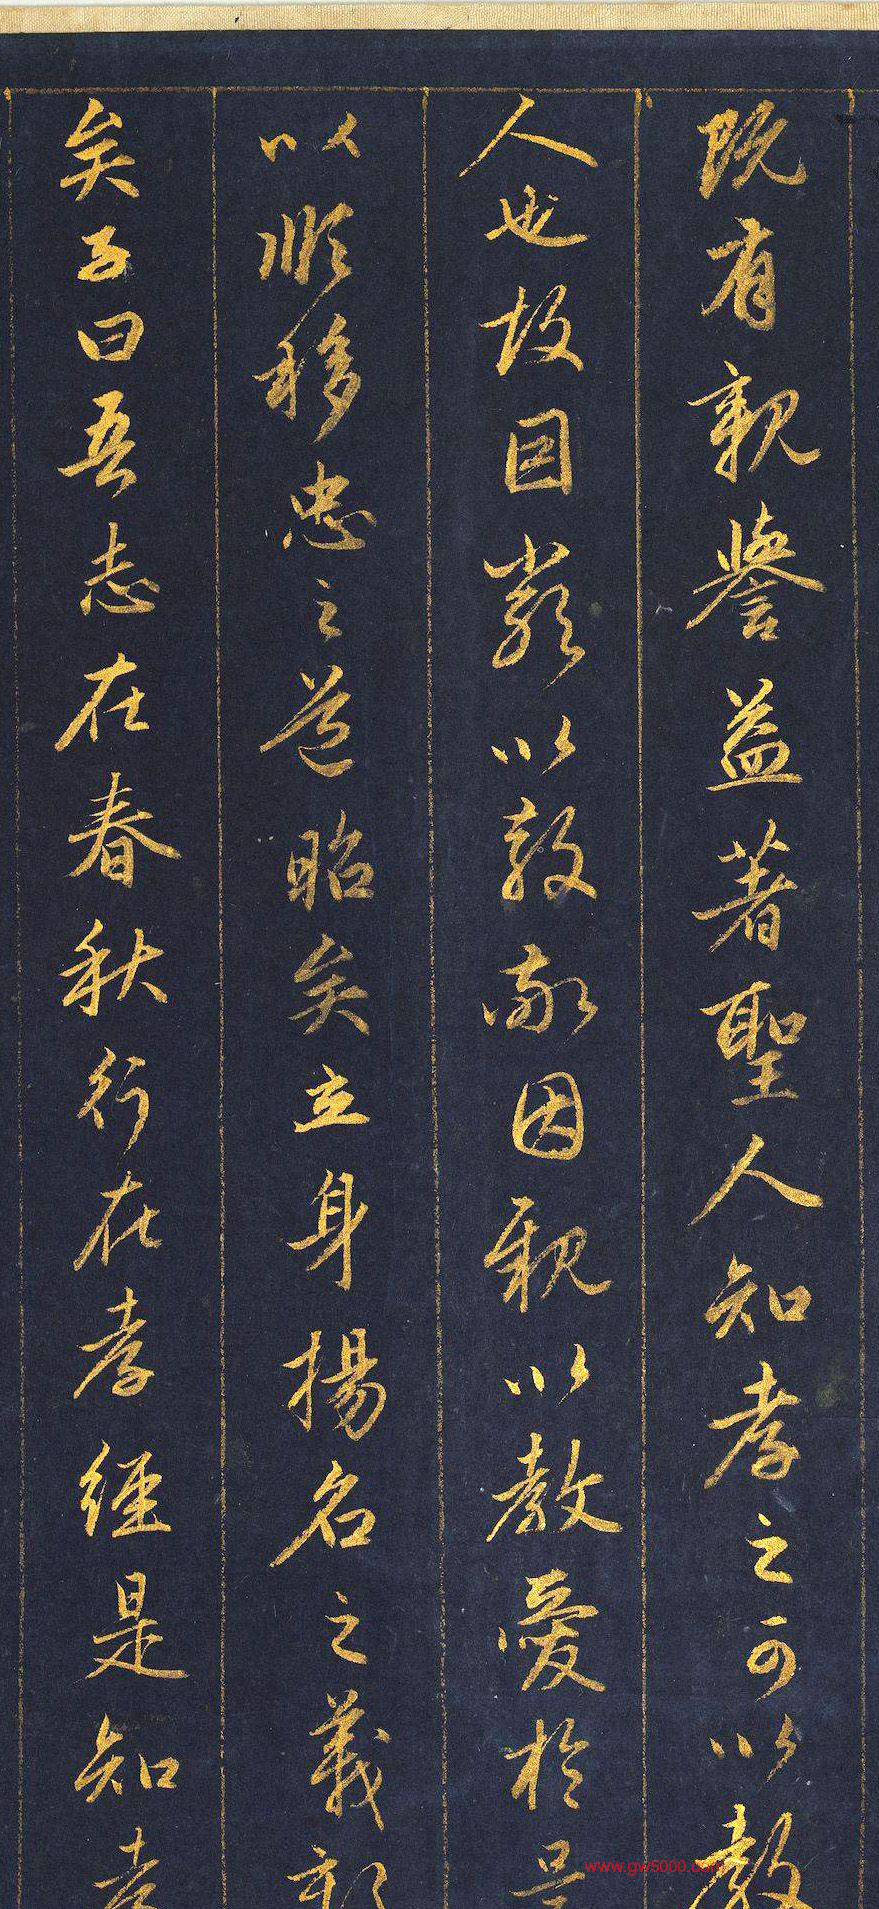 既有親譽益著聖人知孝之可以教
人也故因嚴以教敬因親以教愛於是
以順移忠之道昭矣立身揚名之義彰
矣子曰吾志在春秋行在孝經是知孝
www.gw5000.com